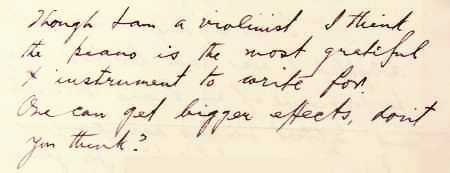 Though I am a violinist I think
the piano is the most grateful
x instrument to write for.
One can get bigger effects, don't
you think?